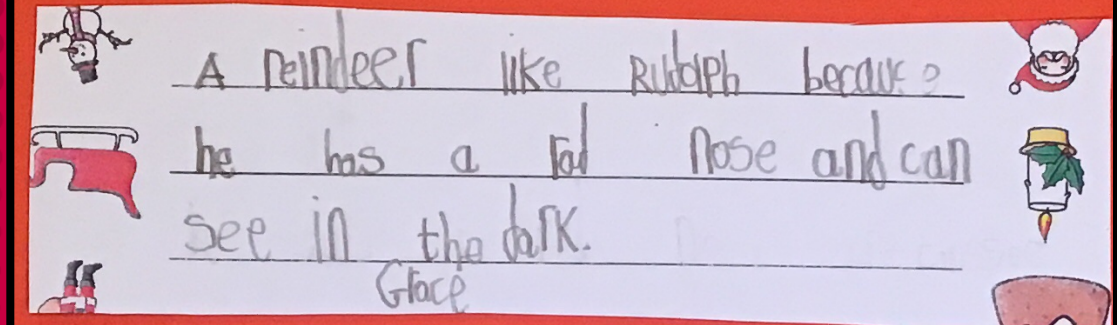 A reindeer like Rudolph because
he has a rad nose and can
see in the dark.
Grace